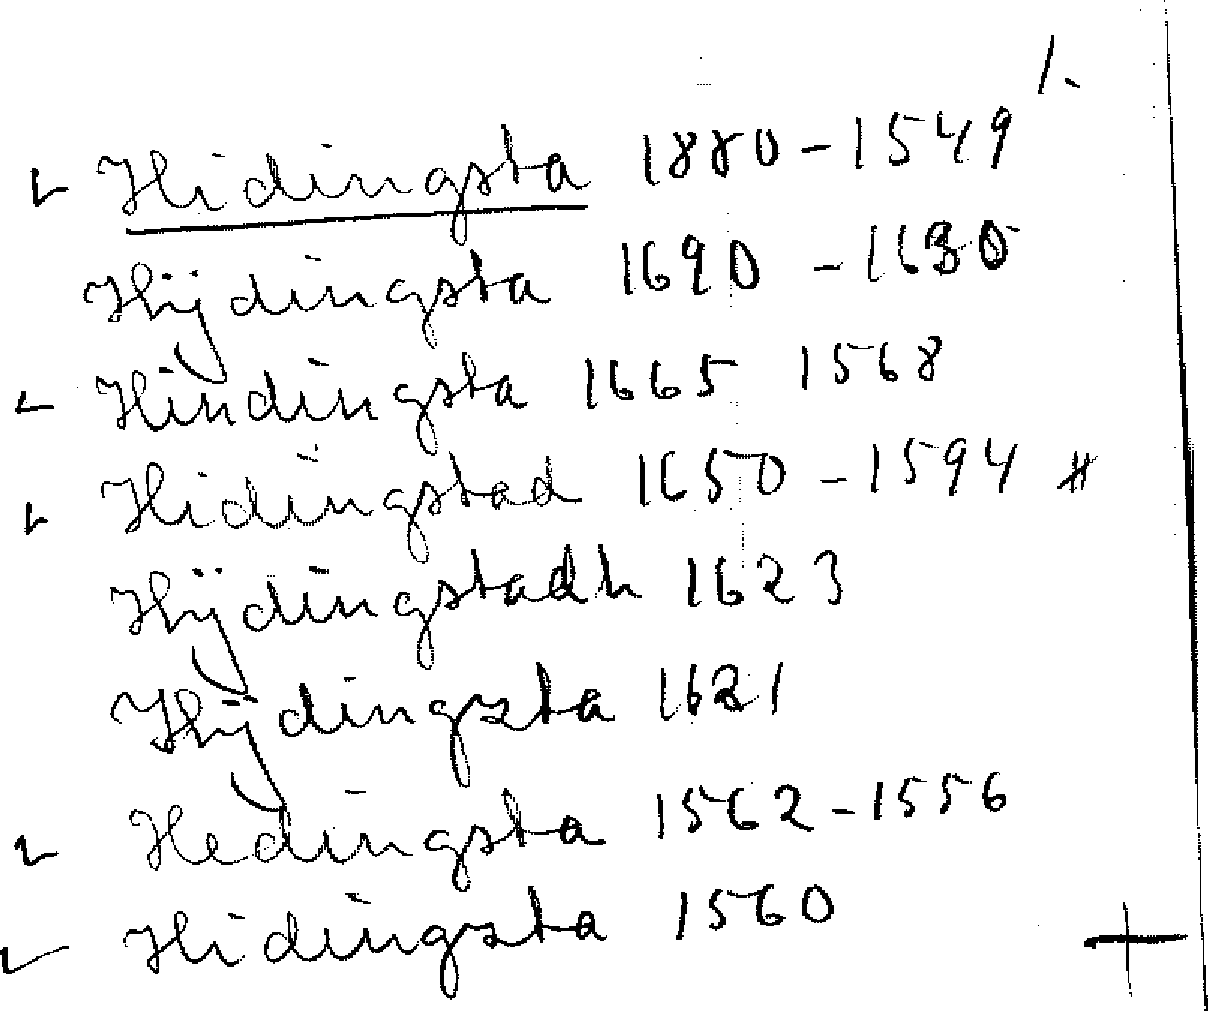 1.
Hidingsta 1880-1549
Hijdingsta 1690 - 1680
Hindingsta 1665 1568
Hidingstad 1650-1594 #
Hijdingstadh 1623
Hijdingzta 1621
Hedingsta 1562-1556
Hidingzta 1560